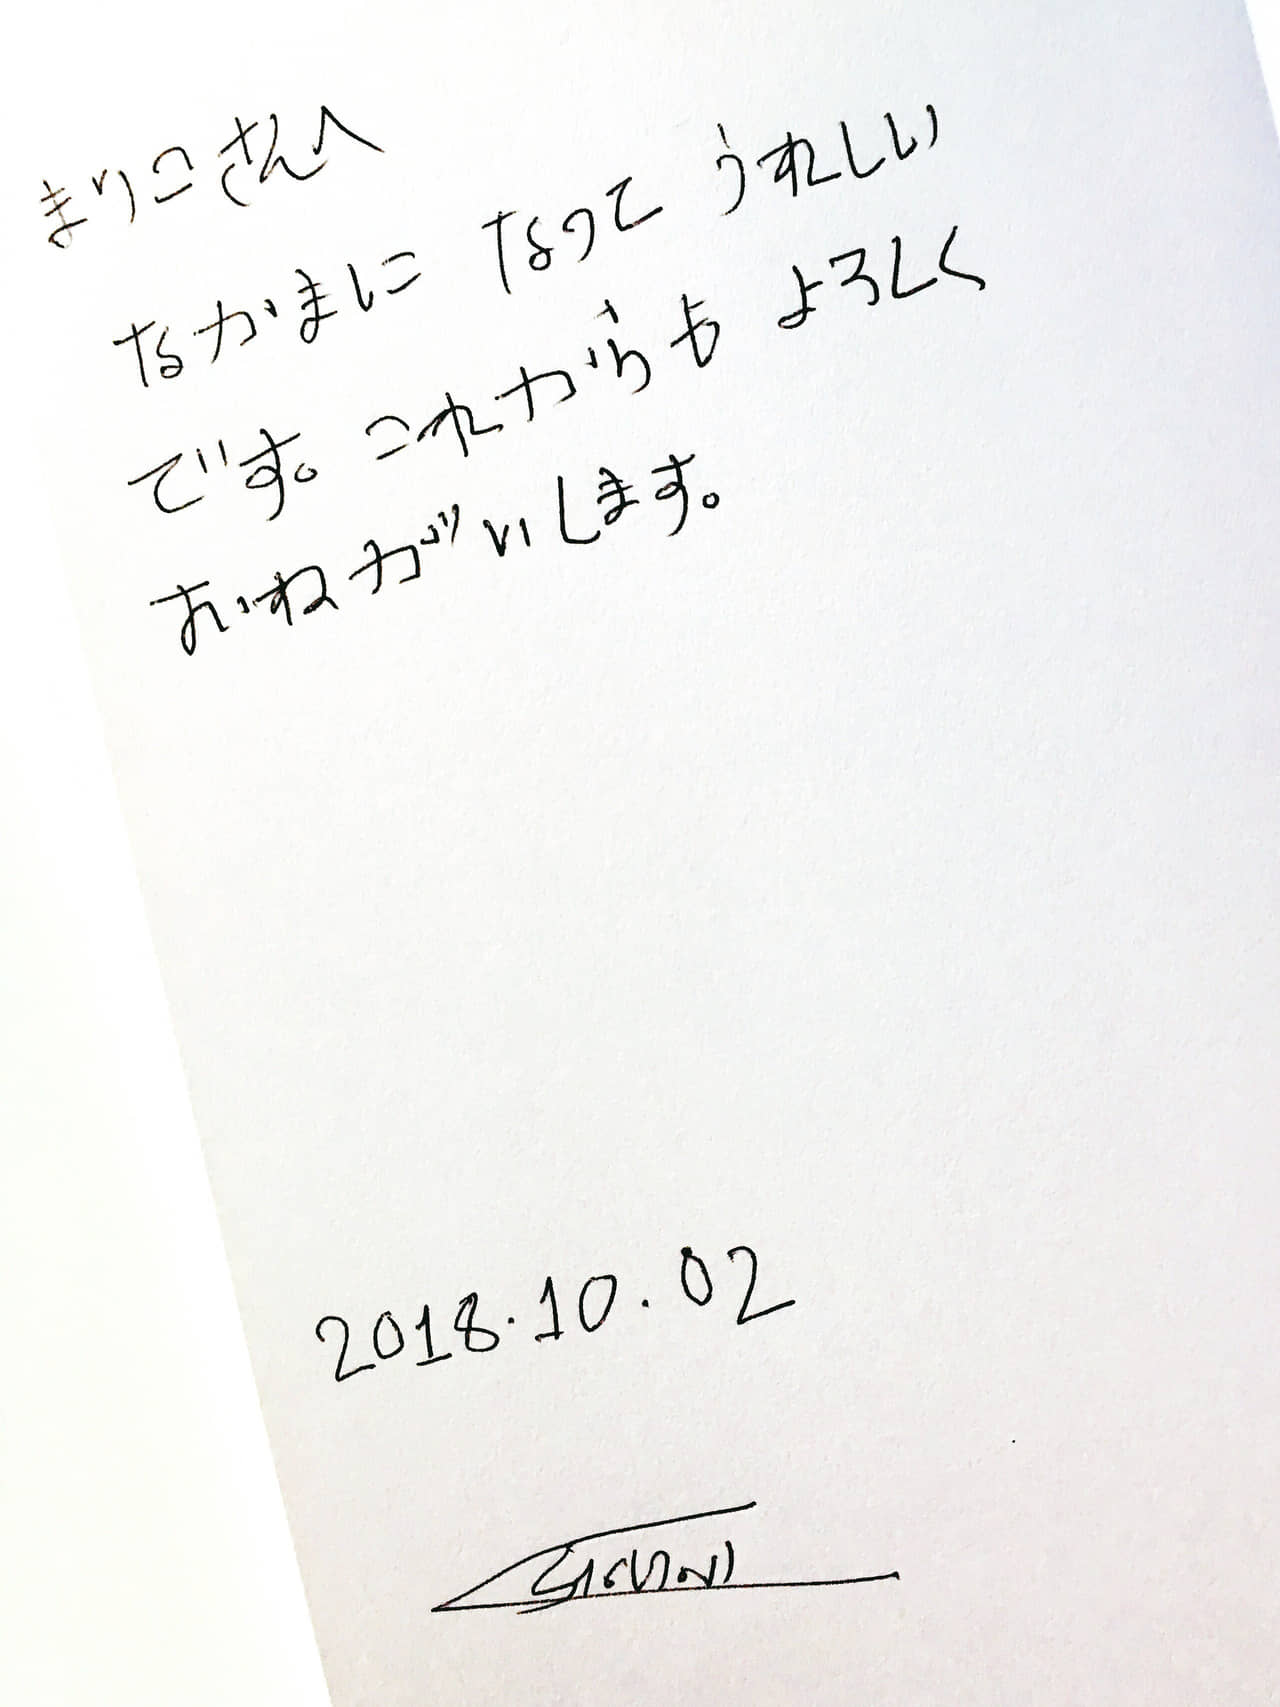 まりこさんへ
なかまに なって うれしい
です。これからも よろしく
おねがいします。
2018.10.02